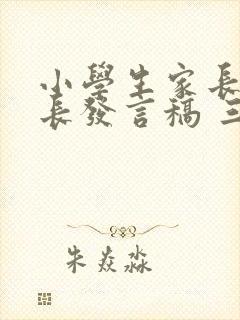 小學生家長
長發言稿 三
朱焱淼